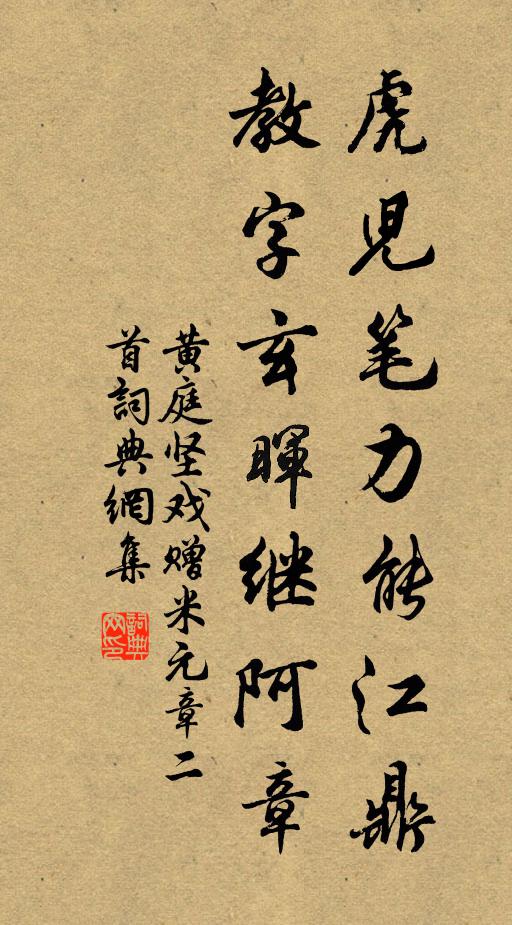 虎児笔力能江鼎
教字玄暉继阿章
黄庭坚戏赠米元章二
首詞典網集
詞典
网印